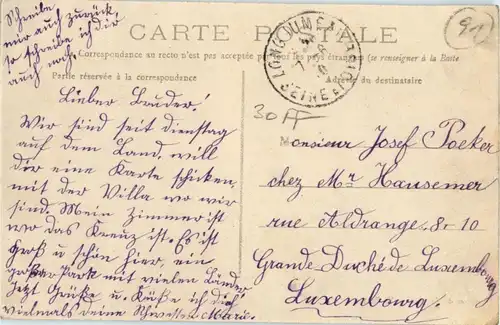 Schreibe
mir auch zurück,
so schreibe ich dir
auch noch.
CARTE POSTALE
Correspondance au recto n'est pas acceptée par tous les pays étrangers (se renseigner à la Poste
Partie réservée à la correspondance
Adresse du destinataire
LONGJUMEAU
SEINE & OISE
91
30 FF
Lieber Bruder!
Wir sind seit dienstag
auf dem Land, will
dir eine Karte schicken,
mit der Villa wo wir
sind. Mein Zimmer ist
wo das Kreuz ist. Es ist
groß u schön hier, ein
großer Park mit vielen Länder
Jetzt Grüße u. Küße ich dich
vielmals deine Schwester Marie.
Monsieur Josef Poeker
chez Mr Hausemer
rue Aldrange 8-10
Grande Duché de Luxembourg
Luxembourg.